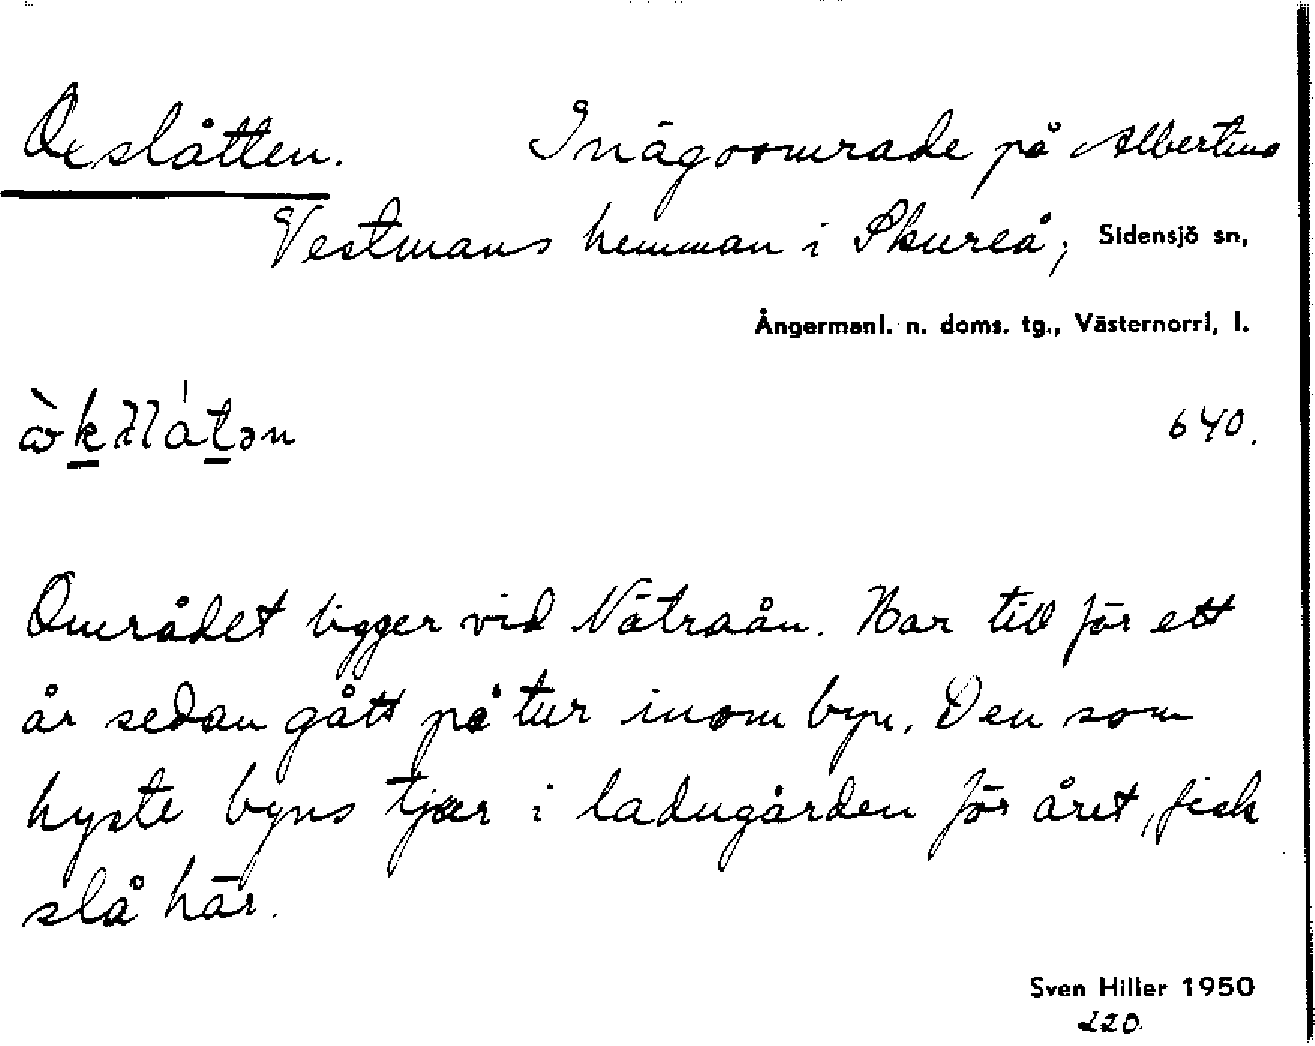 Oxslåtten. Inägoområde på Albertina
Vestmans hemman i Skureå, Sidensjö sn,
Ångermanl. n. doms. tg., Västernorrl, l.
640.
Området ligger vid Nätraån. Har till för ett
år sedan gått på tur inom byn. Den som
hyste byns tjur i ladugården för året, fick
slå här.
Sven Hiller 1950
220